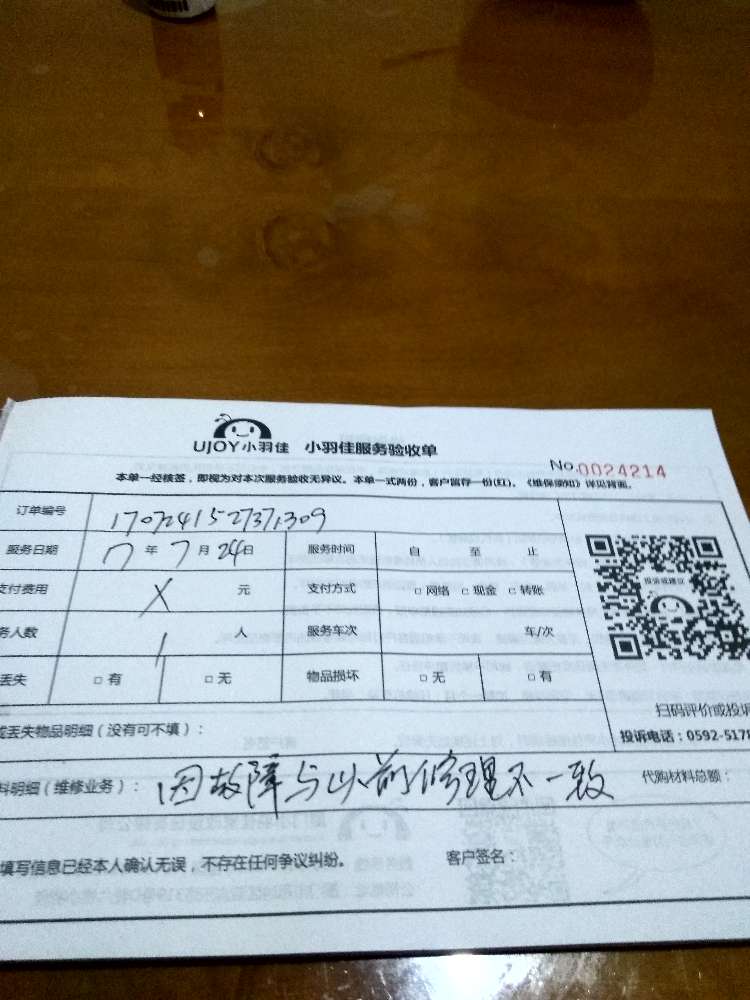 UJOY小羽佳 小羽佳服务验收单
No.0024214
本单一经核签，即视为对本次服务验收无异议。本单一式两份，客户留存一份(红)。《维保须知》详见背面。
订单编号 1707241527371309
服务日期 17 年 7 月 24 日 服务时间 自 至 止
支付费用 X 元 支付方式 □ 网络 □ 现金 □ 转账
务人数 1 人 服务车次 车/次
丢失 □ 有 □ 无 物品损坏 □ 无 □ 有
投诉或建议
扫码评价或投诉
投诉电话：0592-5178
或丢失物品明细（没有可不填）：
料明细（维修业务）： 因故障与以前修理不一致 代购材料总额：
填写信息已经本人确认无误，不存在任何争议纠纷。 客户签名：